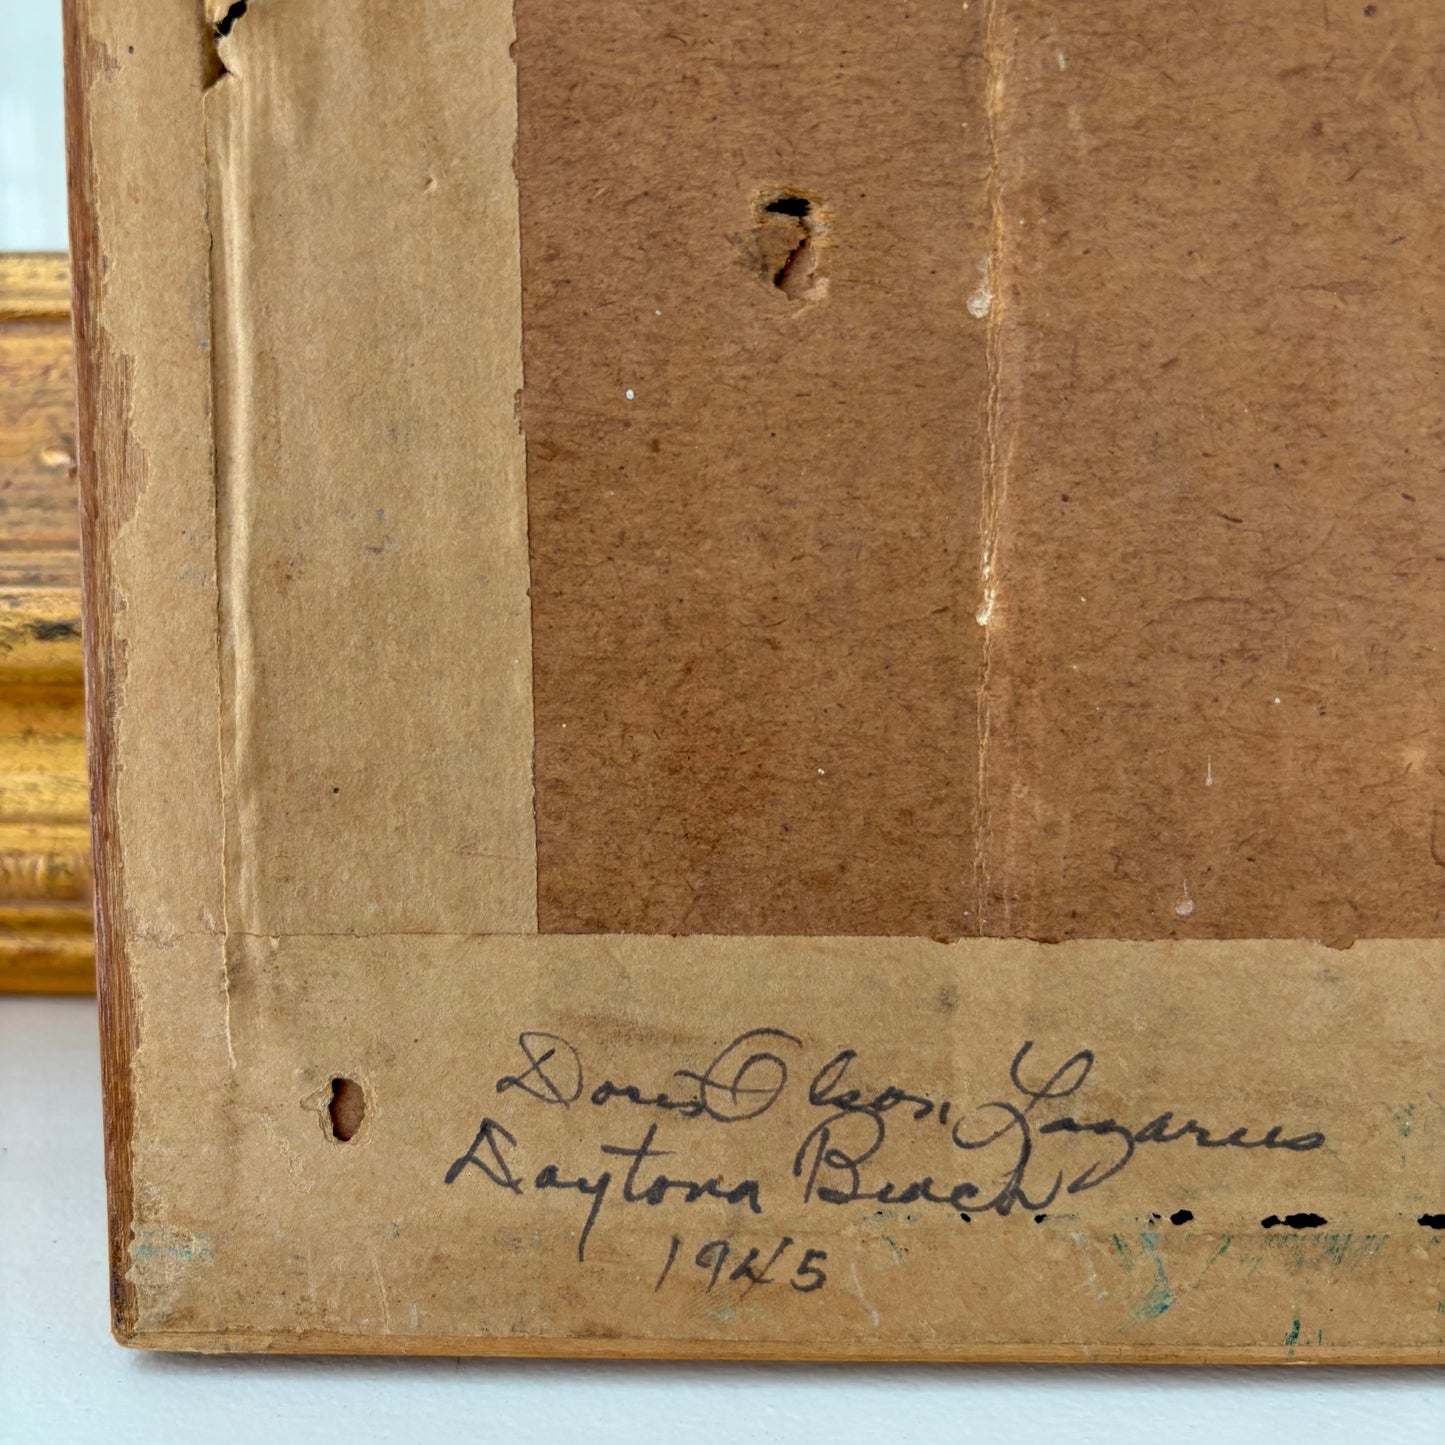 Doris Olson, Lazarus
Daytona Beach
1945